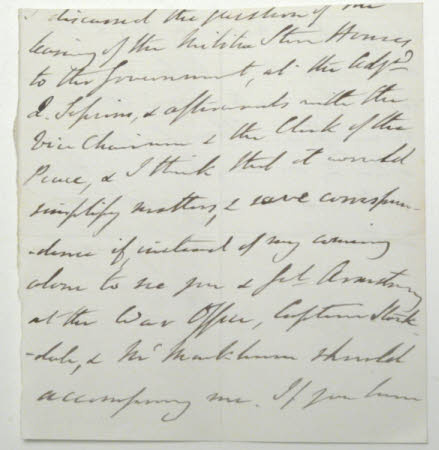 I discussed the question of the
leasing of the Militia Store Houses
to the Government, at the Adjd
Q. Sessions, & afterwards with the
Vice Chairman & the Clerk of the
Peace, & I think that it would
simplify matters, & save correspon-
-dence if, instead of my coming
alone to see you & Armstrong
at the War Office, Captain Stock-
-dale, & Mr Markham should
accompany me. If you have